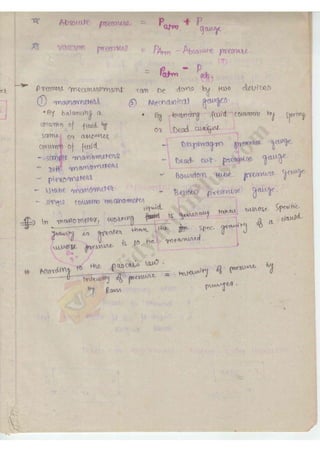 Absolute pressure = Patm + P gauge
Vacuum pressure = PAtm - Absolute pressure
= Patm - P abs.
→ Pressure measurement can be done by two devices
① manometers ② Mechanical gauges
• By balancing a • By balancing fluid column by spring
column of fluid by or Dead weight
same or another - Diaphragm pressure gauge
column of fluid - Dead wt pressure gauge
- simple manometers - Bourdon tube pressure gauge
- diff manometers - Bellows pressure gauge
- piezometers
- single column manometers
liquid
In manometer, is generally have whose specific
gravity is greater than the spec gravity of a liquid
whose pressure is to be measured.
* According to the pascals law.
Intensity of pressure = intensity of pressure by
by Ram plunger.